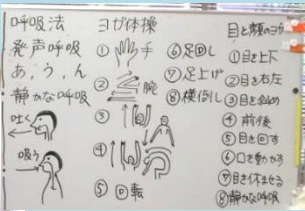 呼吸法
発声呼吸
あ,う,ん
静かな呼吸
吐く
吸う
ヨガ体操
① 手
② 腕
③
④
⑤ 回転
⑥ 足回し
⑦ 足上げ
⑧ 横倒し
目と顔のヨガ
① 目を上下
② 目を右左
③ 目を斜め
④ 前後
⑤ 目を回す
⑥ 口を動かす
⑦ 目を休ませる
⑧ 静かな呼吸